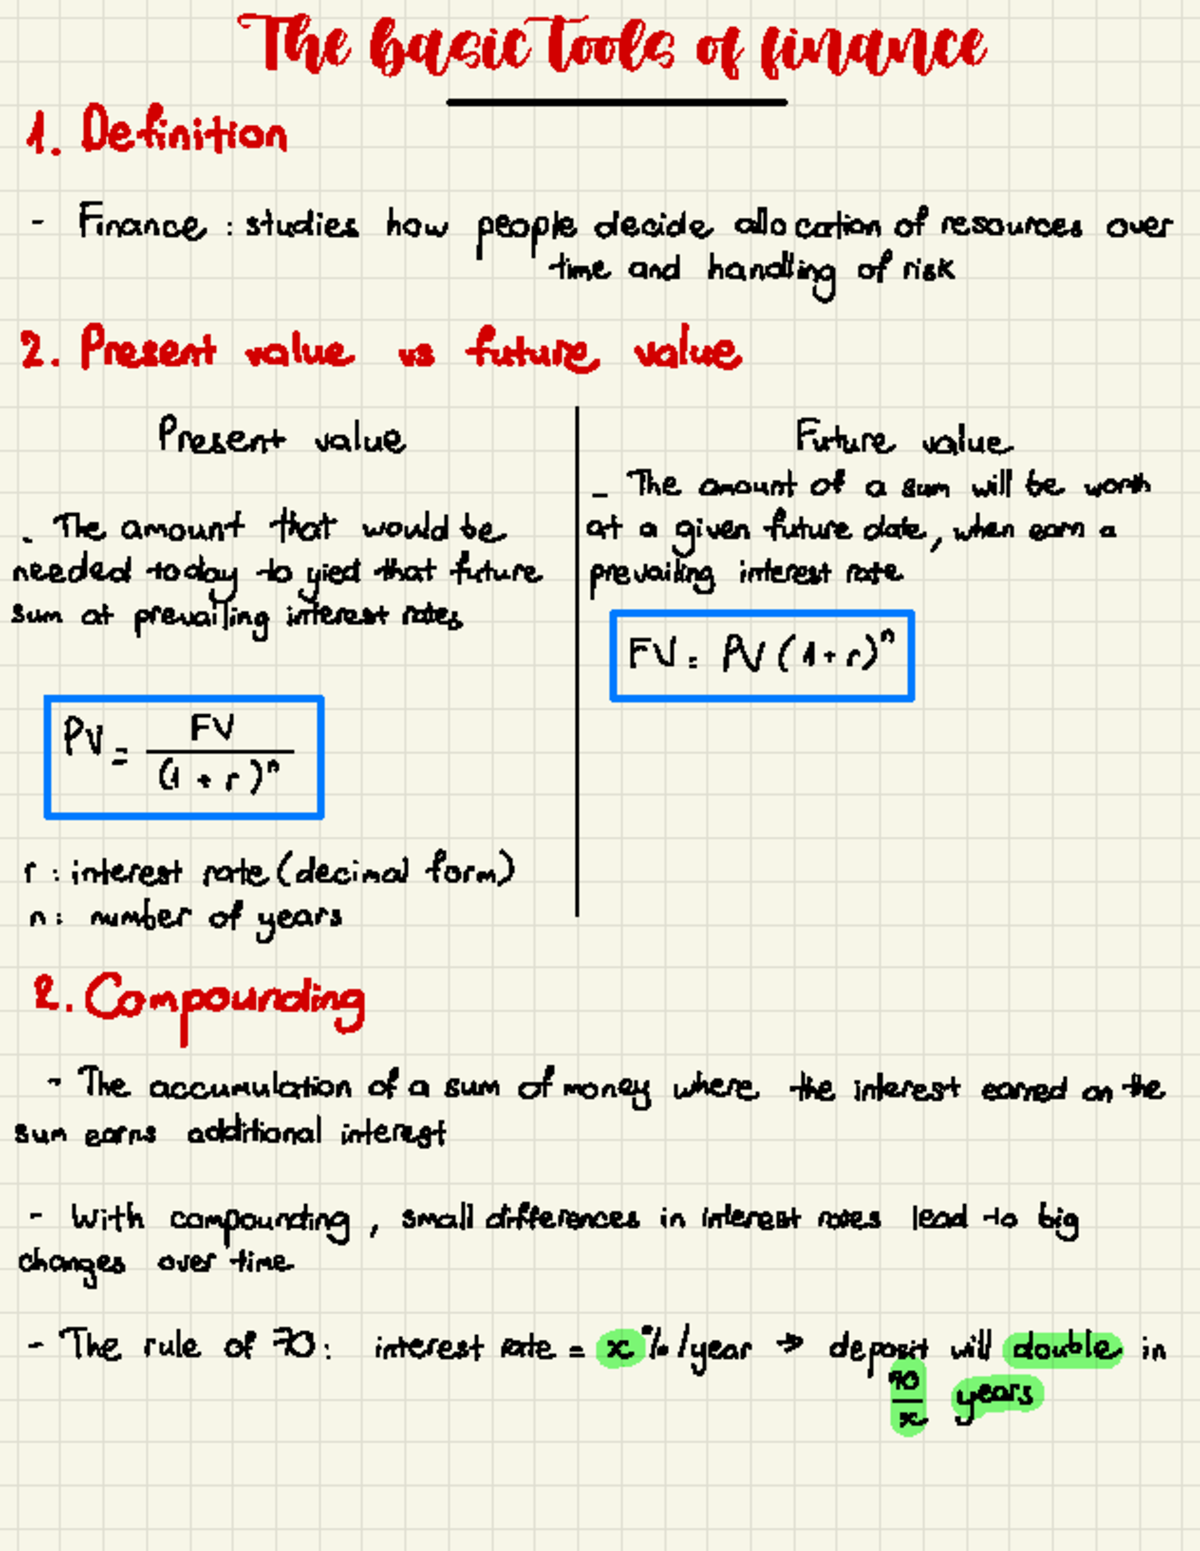 The basic tools of finance
1. Definition
- Finance : studies how people decide allocation of resources over
time and handling of risk
2. Present value vs future value
Present value
- The amount that would be
needed today to yied that future
sum at prevailing interest rates
PV = FV / (1 + r)^n
r : interest rate (decimal form)
n : number of years
Future value
- The amount of a sum will be worth
at a given future date, when earn a
prevailing interest rate
FV = PV (1 + r)^n
2. Compounding
- The accumulation of a sum of money where the interest earned on the
sum earns additional interest
- With compounding, small differences in interest rates lead to big
changes over time
- The rule of 70: interest rate = x % /year → deposit will double in
70/x years